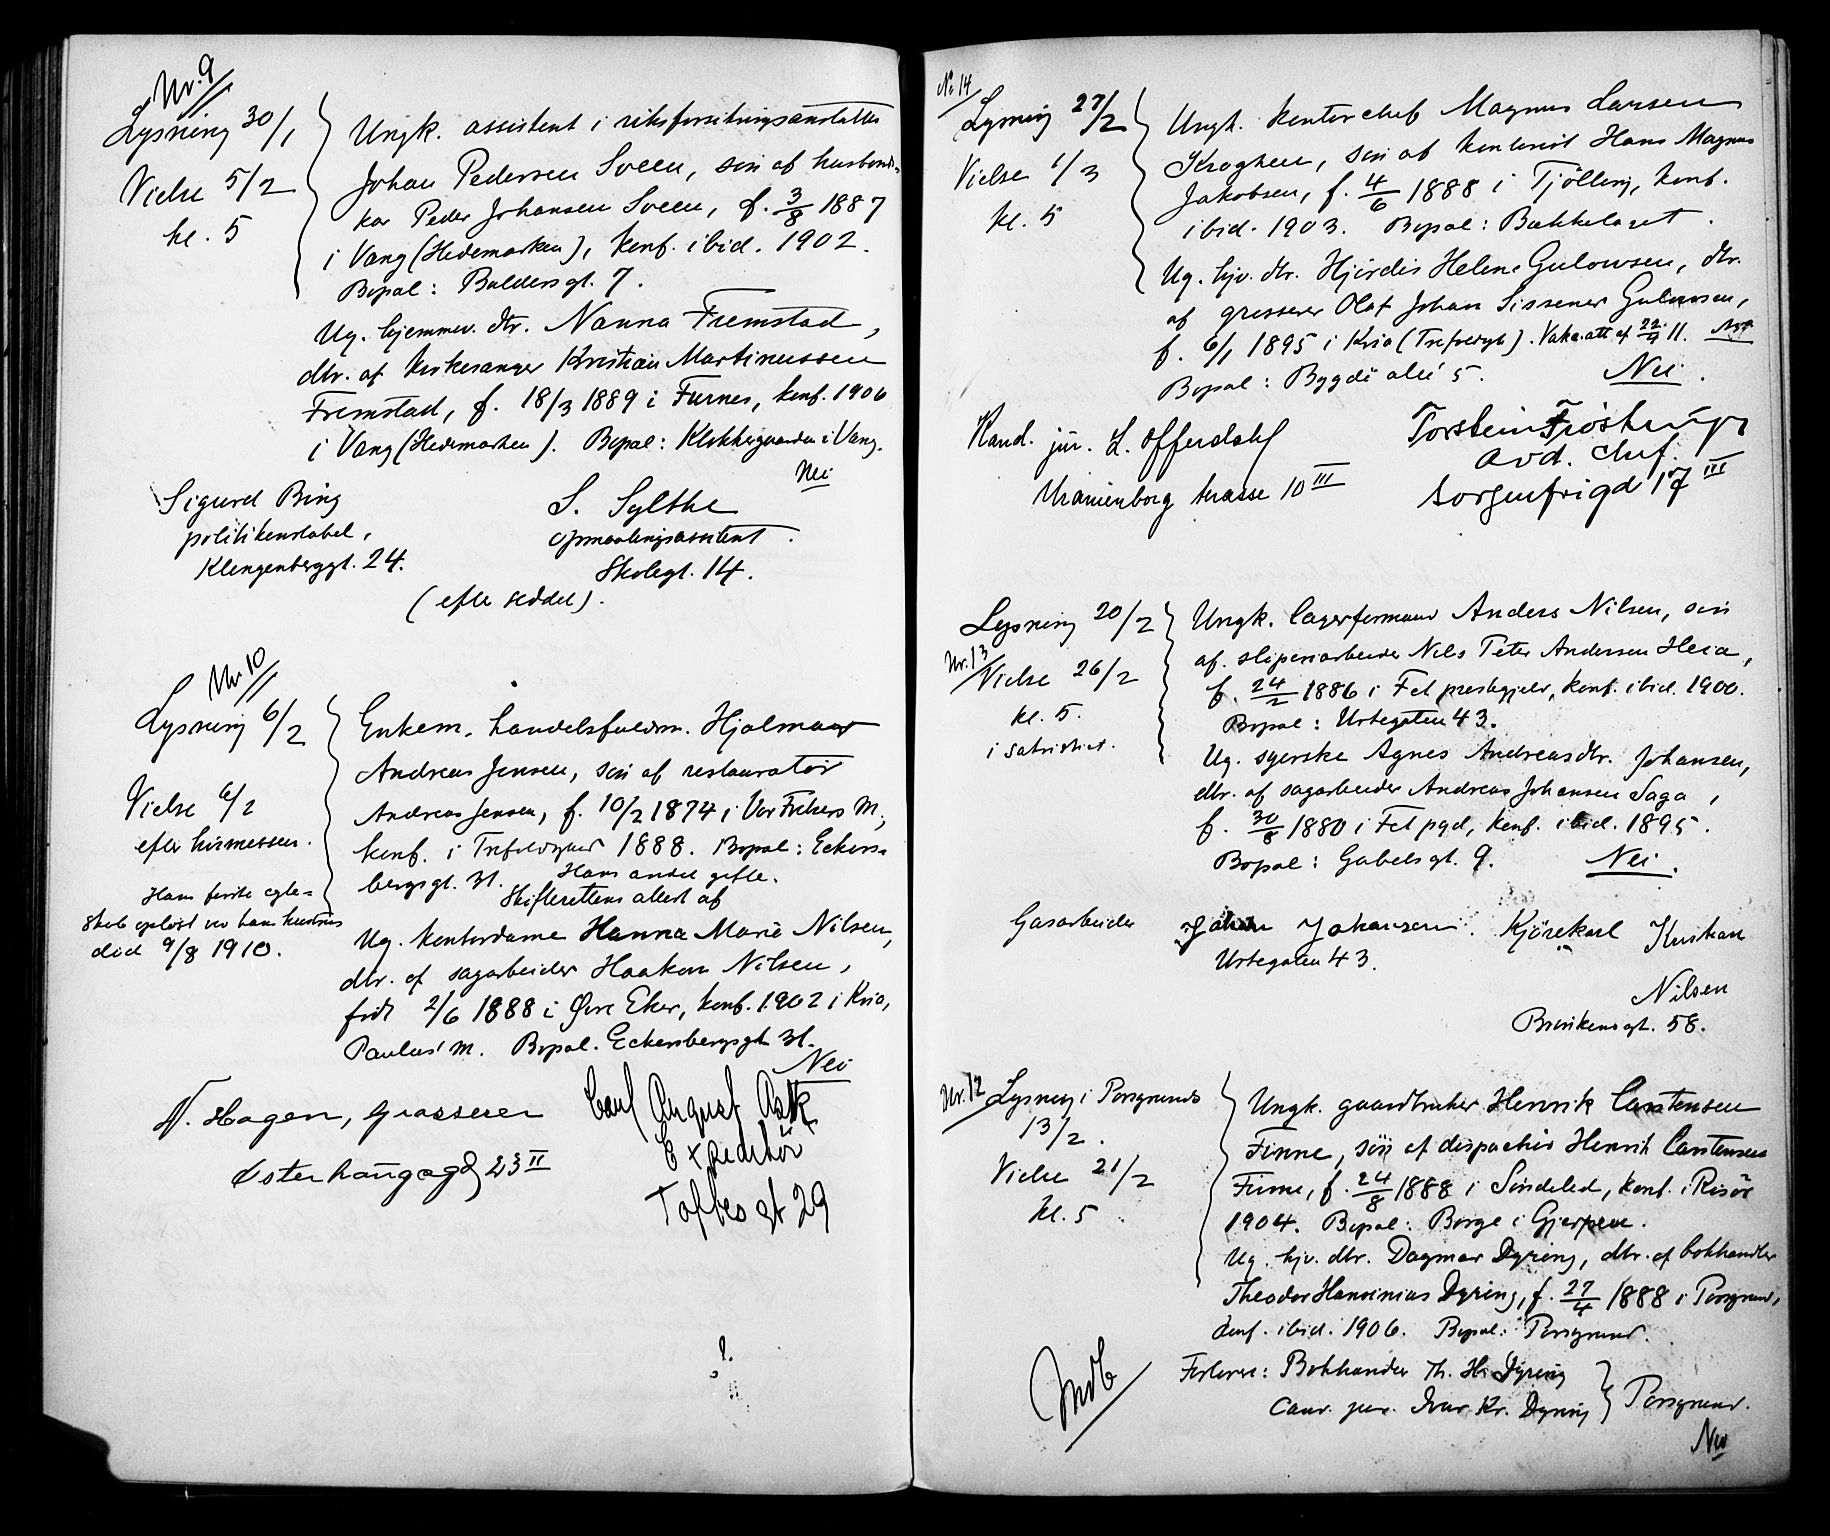 Nr. 9
Lysning 30/1
Vielse 5/2
kl. 5
Ungk. assistent i riksforsikringsanstalten
Johan Pedersen Sveen, søn af husbonds-
kar Peder Johansen Sveen, f. 3/8 1887
i Vang (Hedemarken), konf. ibid. 1902.
Bopæl: Baldersgt. 7.
Ug. hjemmev. dtr. Nanna Fremstad,
dtr. af kirkesanger Kristian Martinussen
Fremstad, f. 18/3 1889 i Furnes, konf. 1906
i Vang (Hedemarken). Bopæl: Klokkergaarden i Vang.
Nei
Sigurd Bing
politikonstabel,
Klingenberggt. 24.
S. Sylthe
opmaalingsassistent.
Skolegt. 14.
(efter seddel).
Nr. 10
Lysning 6/2
Vielse 6/2
efter høimessen.
Hans første egte-
skab opløst ved hans hustrus
død 9/8 1910.
Enkem. handelsfuldm. Hjalmar
Andreas Jensen, søn af restauratør
Andreas Jensen, f. 10/2 1874 i Vor Frelsers M.,
konf. i Trefoldighed 1888. Bopæl: Eckers-
bergsgt. 31. Hans andet gifte.
Skifterettens attest af
Ug. kontordame Hanna Marie Nilsen,
dtr. af sagarbeider Haakon Nilsen,
født 2/6 1888 i Øvre Eker, konf. 1902 i Kria,
Paulus' M. Bopæl. Eckersbergsgt. 31.
Nei
N. Hagen, Grosserer
Østerhaugsgd 23 II
Carl August Ask
Expeditør
Toftes gt 29
No 14
Lysning 27/2
Vielse 1/3
kl. 5
Ungk. kontorchef Magnus Larsen
Kroghen, søn af kontorist Hans Magnus
Jakobsen, f. 4/6 1888 i Tjølling, konf.
ibid. 1903. Bopæl: Bækkelaget.
Ug. hjv. dtr. Hjørdis Helene Gulowsen, dtr.
af grosserer Olaf Johan Sissener Gulowsen,
f. 6/1 1895 i Kria (Trefoldigh). Vakc.att. af 22/9 11.
Bopæl: Bygdø alle 5. Nei.
Kand. jur. L. Offerdahl
Uranienborg terasse 10 III
Torstein Frøstrup
avd. chef.
Sorgenfrigd 17 III
Lysning 20/2
Nr. 13
Vielse 26/2
kl. 5.
i sakristiet.
Ungk. lagerformand Anders Nilsen, søn
af sliperiarbeider Nils Peter Andersen Heia,
f. 24/2 1886 i Fet prestegjeld, konf. ibid. 1900.
Bopæl: Urtegaten 43.
Ug. syerske Agnes Andreasdtr. Johansen,
dtr. af sagarbeider Andreas Johansen Saga,
f. 30/8 1880 i Fet pgd, konf. ibid. 1895.
Bopæl: Gabelsgt. 9. Nei.
Gasarbeider Johan Johansen.
Urtegaten 43.
Kjørekarl Kristian
Nilsen
Brinkens gt. 58.
Nr. 12
Lysning i Porsgrund
13/2.
Vielse 21/2
kl. 5
Ungk. gaardbruker Henrik Carstensen
Finne, søn af dispachør Henrik Carstensen
Finne, f. 24/8 1888 i Søndeled, konf. i Risør
1904. Bopæl: Borge i Gjerpen.
Ug. hjv. dtr. Dagmar Dyring, dtr. af bokhandler
Theodor Hansinius Dyring, f. 27/4 1888 i Porsgrund,
konf. ibid. 1906. Bopæl: Porsgrund.
Indb
Forlovere: Bokhandler Th. H. Dyring
Cand. jur. Ivar Kr. Dyring
Porsgrund.
Nei